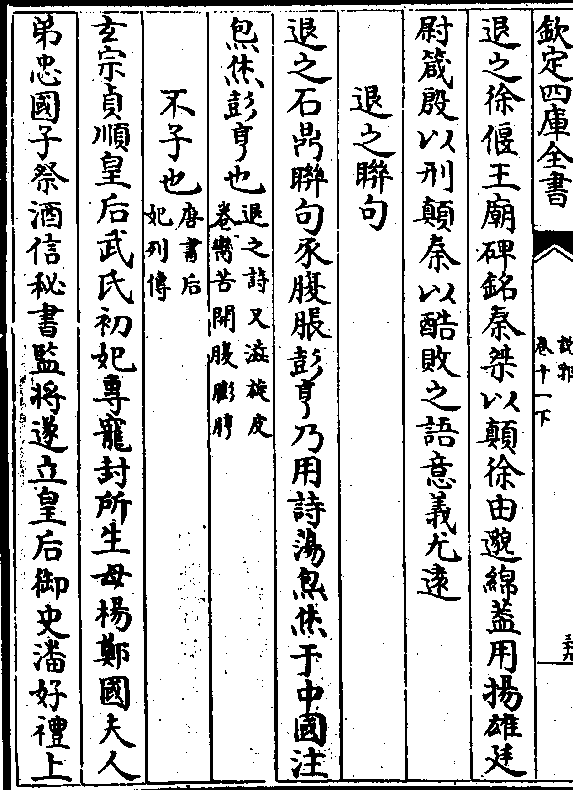 欽定四庫全書
說郛
卷十一下
退之徐偃王廟碑銘秦桀以顛徐由邈綿蓋用揚雄廷
尉箴殷以刑顛秦以酷敗之語意義尤遠
退之聯句
退之石鼎聯句豕腹脹彭亨乃用詩蕩炰烋于中國注
炰烋彭亨也
退之詩又滋旋皮
卷臠苦開腹膨脝
不子也
唐書后
妃列傳
玄宗貞順皇后武氏初妃尊寵封所生母楊鄭國夫人
弟忠國子祭酒信秘書監將遂立皇后御史潘好禮上